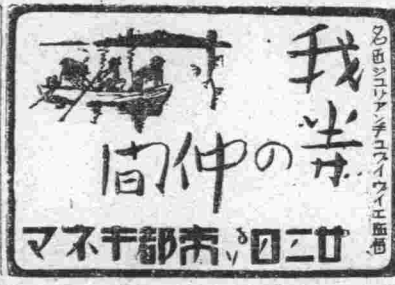 名匠ジュリアンデュヴイヴイエ監督
我等
の仲間
廿二日より 南都キネマ